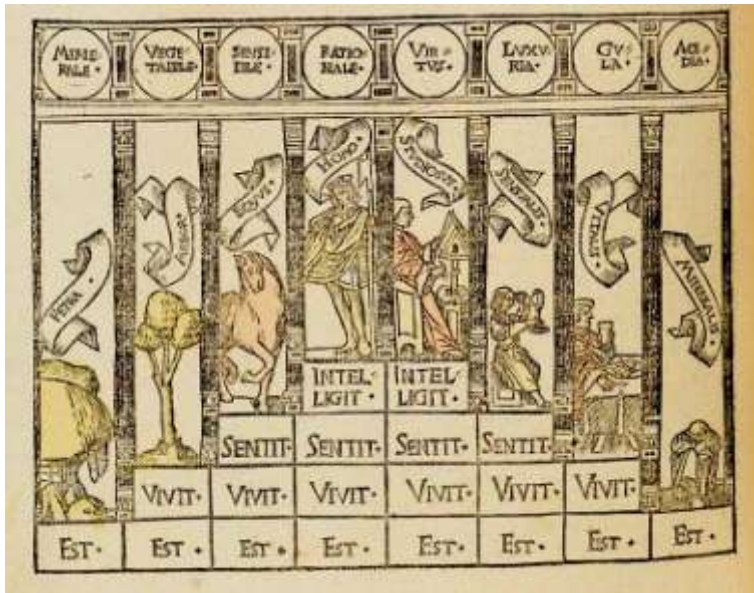 MINE-
RALE·
VEGE-
TABILE·
SENSI-
BILE·
RATIO-
NALE·
VIR-
TVS·
LUXU-
RIA·
GV-
LA·
ACE-
DIA·
PETRA·
ARBOR·
EQVVS·
HOMO·
STVDIOSVS·
SENSVALIS·
VITALIS·
MINERALIS·
INTEL-
LIGIT·
INTEL-
LIGIT·
SENTIT· SENTIT· SENTIT· SENTIT·
VIVIT· VIVIT· VIVIT· VIVIT· VIVIT· VIVIT·
EST· EST· EST· EST· EST· EST· EST· EST·